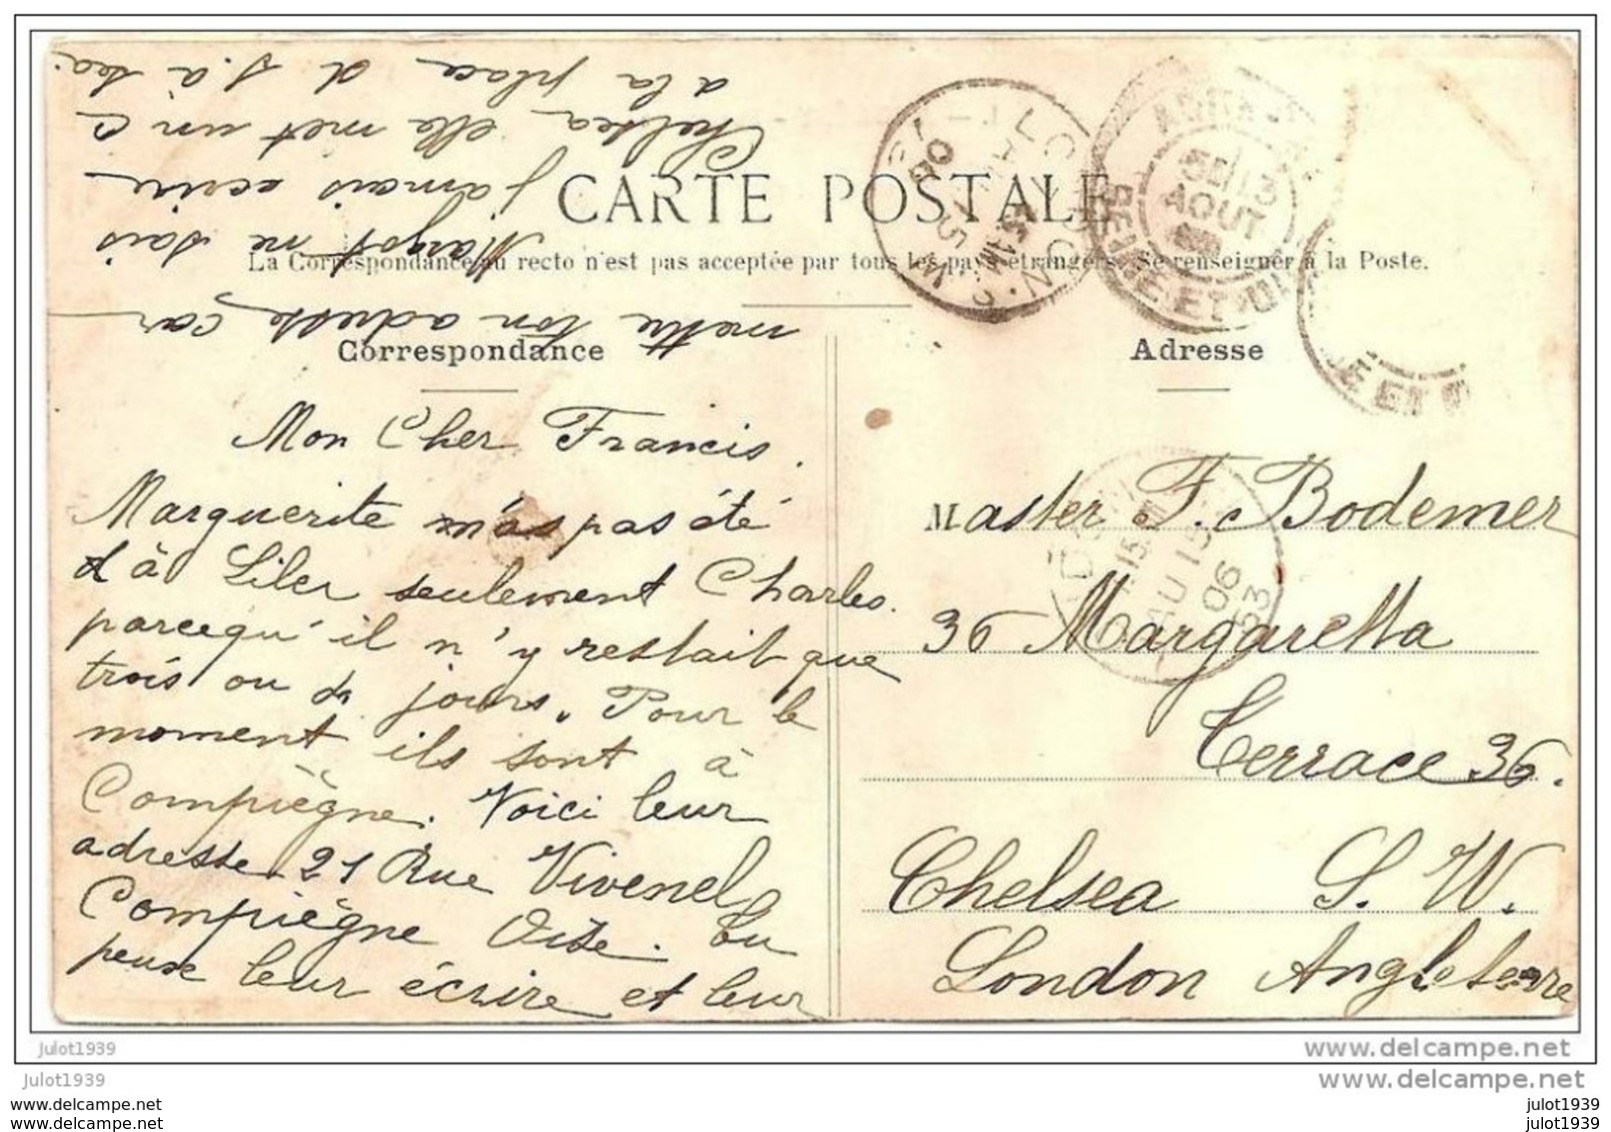 CARTE POSTALE
La Correspondance au recto n'est pas acceptée par tous les pays étrangers. Se renseigner à la Poste.
Correspondance
Mon Cher Francis.
Marguerite n'as pas été
à Liler seulement Charles.
parcequ'il n'y restait que
trois ou jours. Pour le
moment ils sont à
Compiègne. Voici leur
adresse 21 Rue Vivenel
Compiègne Oise. Tu
peux leur écrire et leur
mettre ton adresse car
Margot ne sais
jamais ecrire
Chelsea, elle met un C
a la place d S. à sea.
Adresse
Master F. Bodemer
36 Margaretta
Terrace 36.
Chelsea S. W.
London Angleterre
LONDON. S.W.
5.15 PM
AU 15
06
13
AOUT
SEINE ET OI
NE ET
15
AU 15
06
53
julot1939
www.delcampe.net
julot1939
www.delcampe.net
julot1939
julot1939
julot1939
julot1939